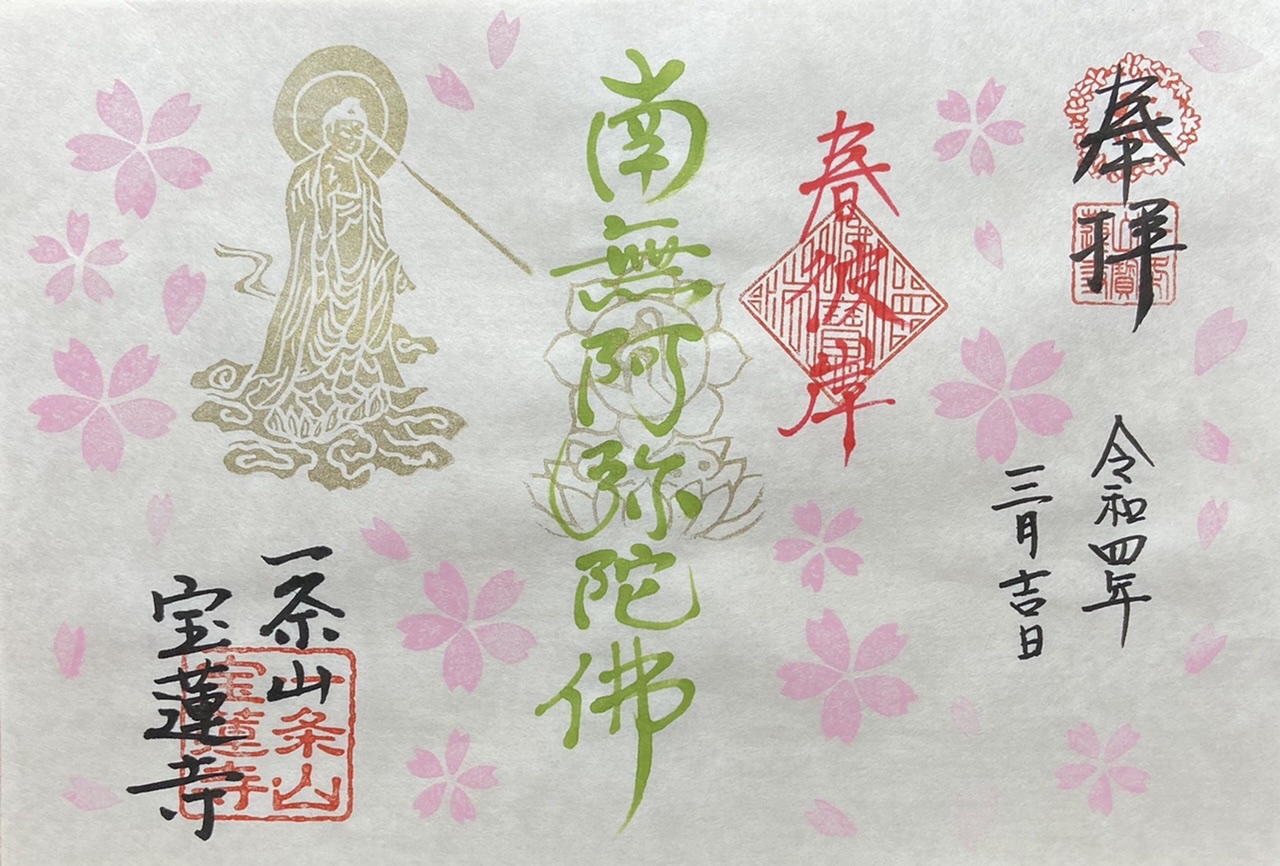 奉拝
令和四年
三月吉日
春彼岸
南無阿弥陀佛
一条山
宝蓮寺
一条山
宝蓮寺